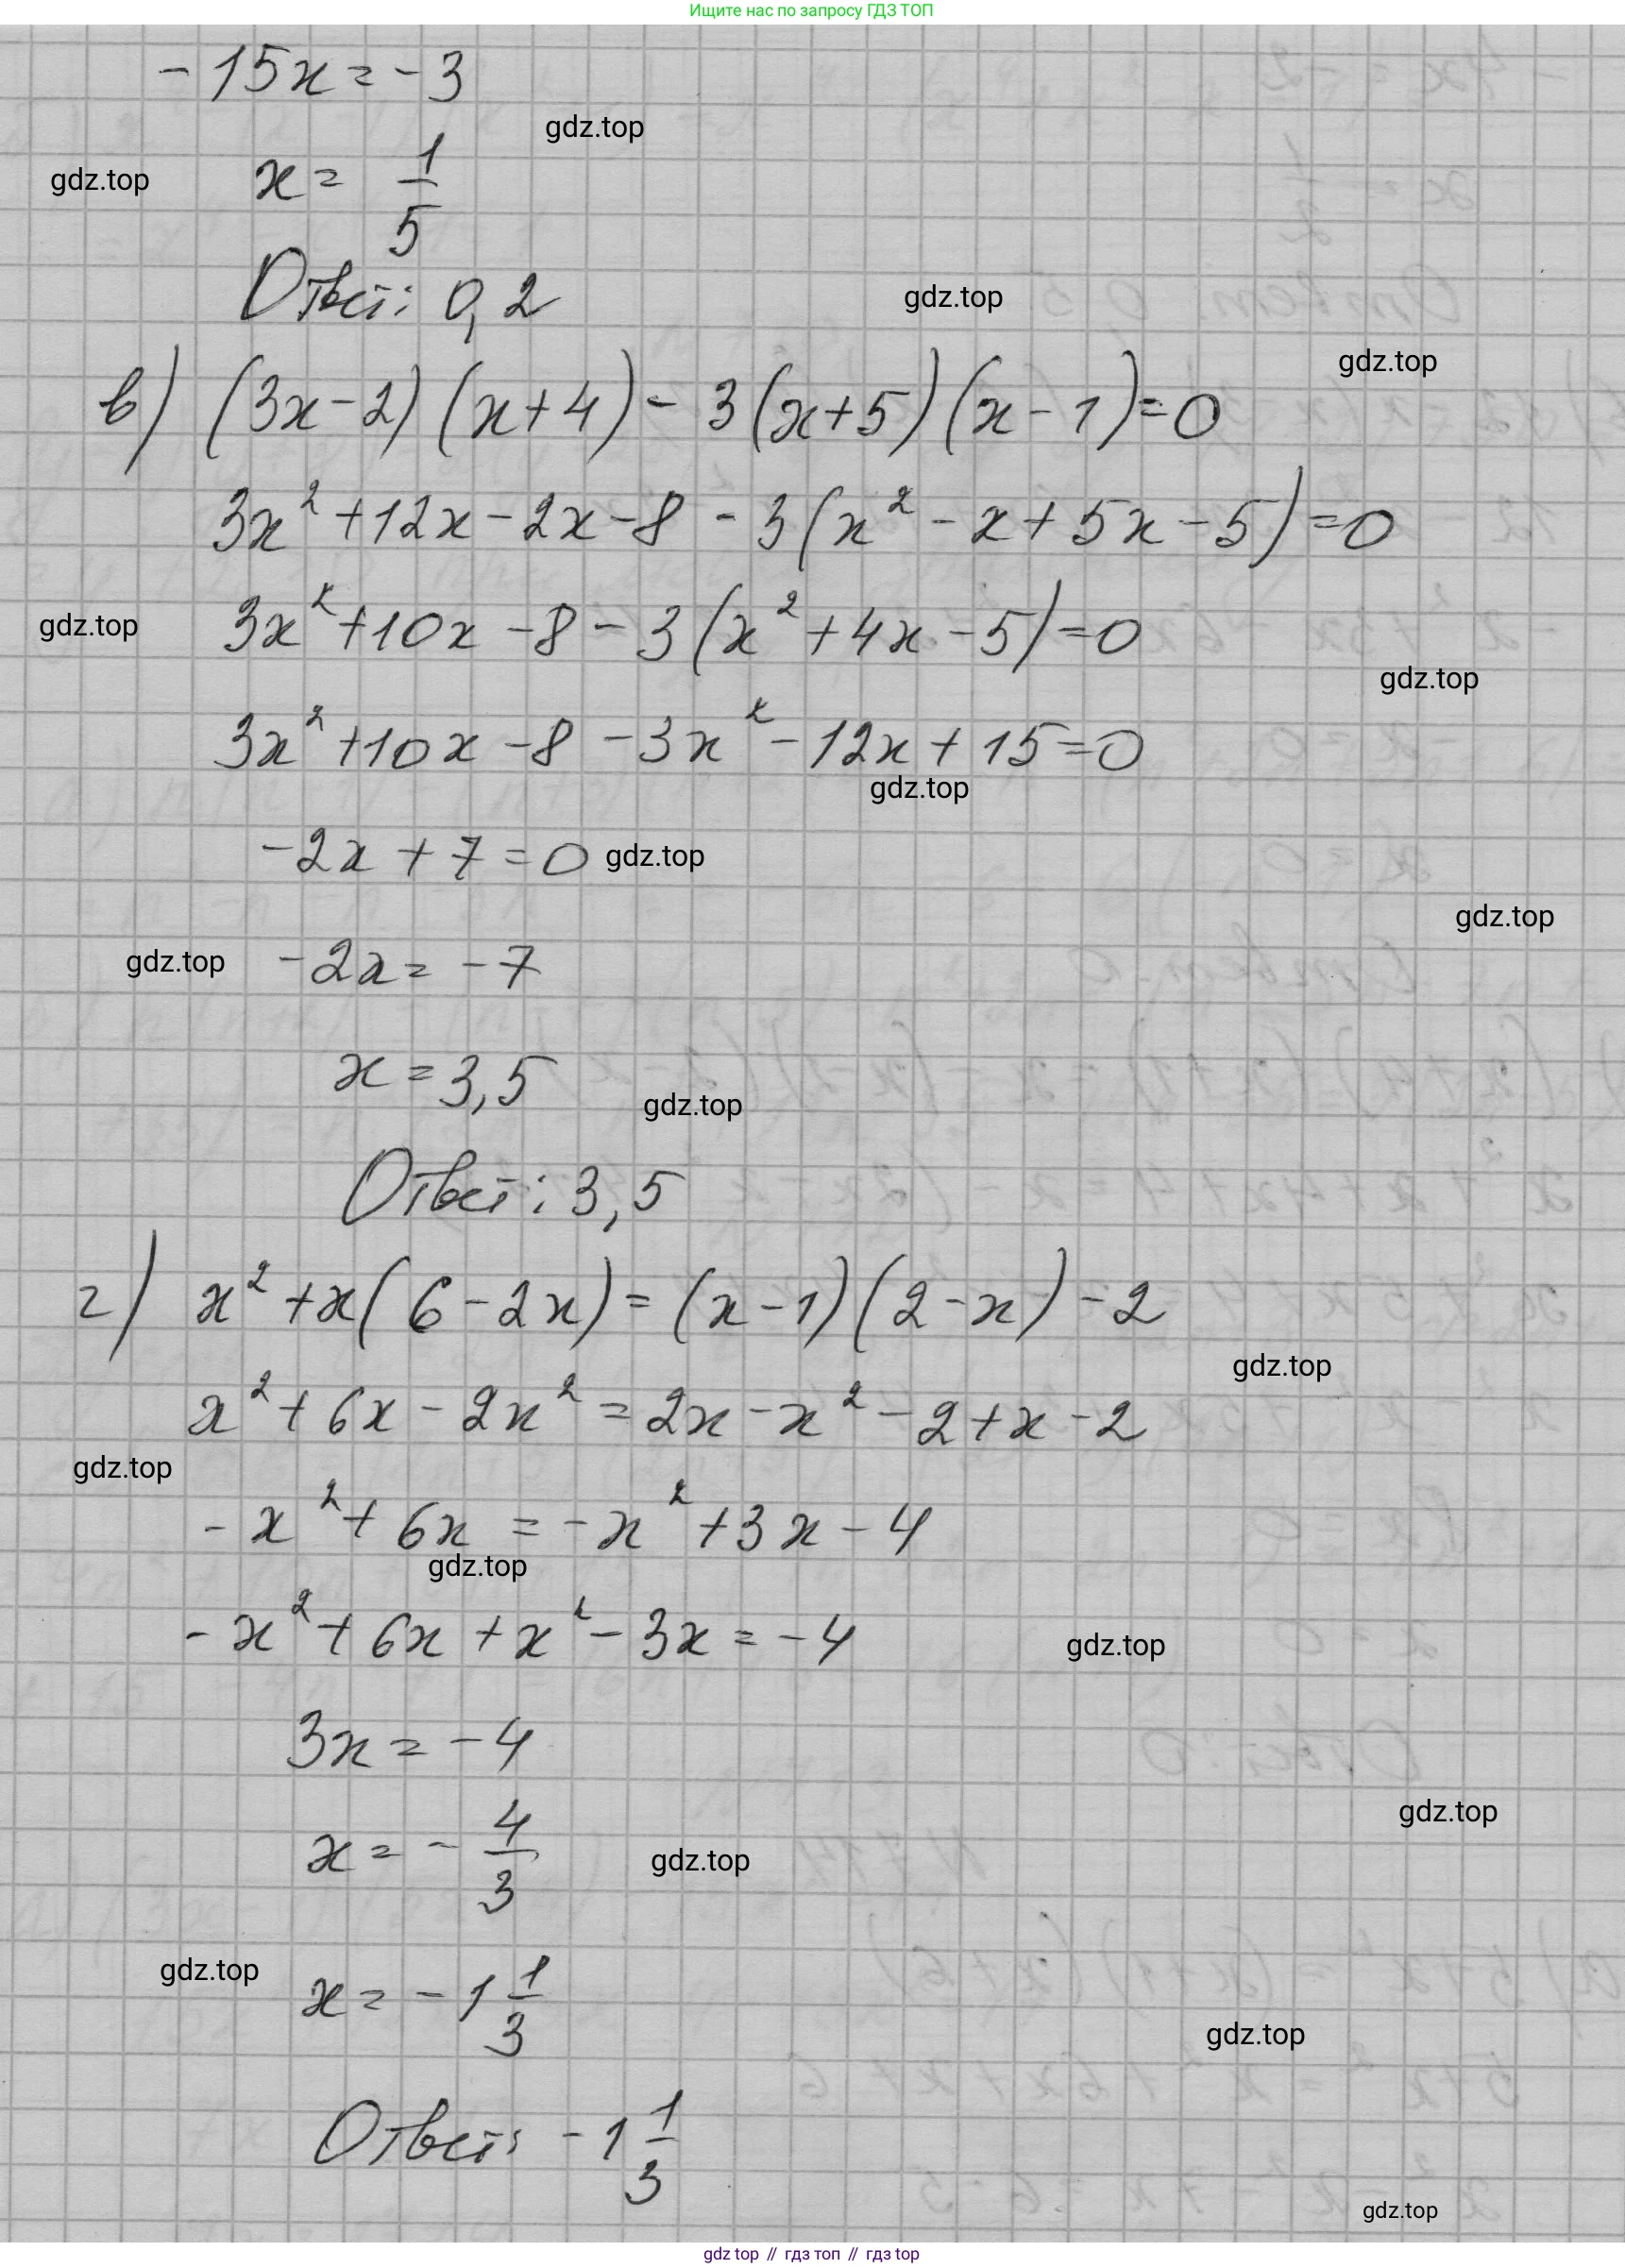 Ищите нас по запросу ГДЗ ТОП
-15x=-3
gdz.top
x= 1/5
gdz.top
Ответ: 0,2
gdz.top
gdz.top
в) (3x-2)(x+4)-3(x+5)(x-1)=0
3x²+12x-2x-8-3(x²-x+5x-5)=0
3x²+10x-8-3(x²+4x-5)=0
gdz.top
gdz.top
3x²+10x-8-3x²-12x+15=0
gdz.top
-2x+7=0 gdz.top
gdz.top
gdz.top -2x=-7
x=3,5
gdz.top
Ответ: 3,5
г) x²+x(6-2x)=(x-1)(2-x)-2
gdz.top
x²+6x-2x²=2x-x²-2+x-2
gdz.top
-x²+6x=-x²+3x-4
gdz.top
-x²+6x+x²-3x=-4
gdz.top
3x=-4
gdz.top
x=-4/3
gdz.top
gdz.top
x=-1 1/3
gdz.top
Ответ: -1 1/3
gdz.top
gdz top // гдз топ // гдз top